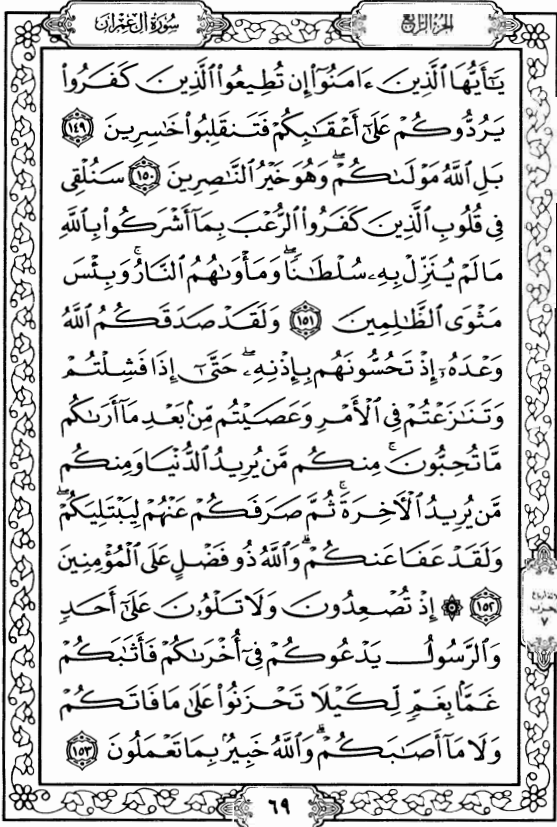 سورة آل عمران
الجزء الرابع
يَٰٓأَيُّهَا ٱلَّذِينَ ءَامَنُوٓا۟ إِن تُطِيعُوا۟ ٱلَّذِينَ كَفَرُوا۟
يَرُدُّوكُمْ عَلَىٰٓ أَعْقَٰبِكُمْ فَتَنقَلِبُوا۟ خَٰسِرِينَ ١٤٩
بَلِ ٱللَّهُ مَوْلَىٰكُمْ ۖ وَهُوَ خَيْرُ ٱلنَّٰصِرِينَ ١٥٠ سَنُلْقِى
فِى قُلُوبِ ٱلَّذِينَ كَفَرُوا۟ ٱلرُّعْبَ بِمَآ أَشْرَكُوا۟ بِٱللَّهِ
مَا لَمْ يُنَزِّلْ بِهِۦ سُلْطَٰنًا ۖ وَمَأْوَىٰهُمُ ٱلنَّارُ ۚ وَبِئْسَ
مَثْوَى ٱلظَّٰلِمِينَ ١٥١ وَلَقَدْ صَدَقَكُمُ ٱللَّهُ
وَعْدَهُۥٓ إِذْ تَحُسُّونَهُم بِإِذْنِهِۦ ۖ حَتَّىٰٓ إِذَا فَشِلْتُمْ
وَتَنَٰزَعْتُمْ فِى ٱلْأَمْرِ وَعَصَيْتُم مِّنۢ بَعْدِ مَآ أَرَىٰكُم
مَّا تُحِبُّونَ ۚ مِنكُم مَّن يُرِيدُ ٱلدُّنْيَا وَمِنكُم
مَّن يُرِيدُ ٱلْءَاخِرَةَ ۚ ثُمَّ صَرَفَكُمْ عَنْهُمْ لِيَبْتَلِيَكُمْ ۖ
وَلَقَدْ عَفَا عَنكُمْ ۗ وَٱللَّهُ ذُو فَضْلٍ عَلَى ٱلْمُؤْمِنِينَ
١٥٢ ۞ إِذْ تُصْعِدُونَ وَلَا تَلْوُۥنَ عَلَىٰٓ أَحَدٍ
وَٱلرَّسُولُ يَدْعُوكُمْ فِىٓ أُخْرَىٰكُمْ فَأَثَٰبَكُمْ
غَمًّۢا بِغَمٍّ لِّكَيْلَا تَحْزَنُوا۟ عَلَىٰ مَا فَاتَكُمْ
وَلَا مَآ أَصَٰبَكُمْ ۗ وَٱللَّهُ خَبِيرٌۢ بِمَا تَعْمَلُونَ ١٥٣
حزب
٧
٦٩